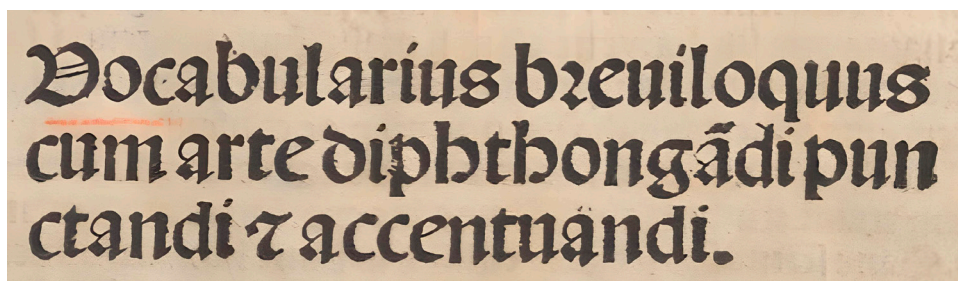 Vocabularius breuiloquus
cum arte diphthongãdi pun
ctandi ⁊ accentuandi.